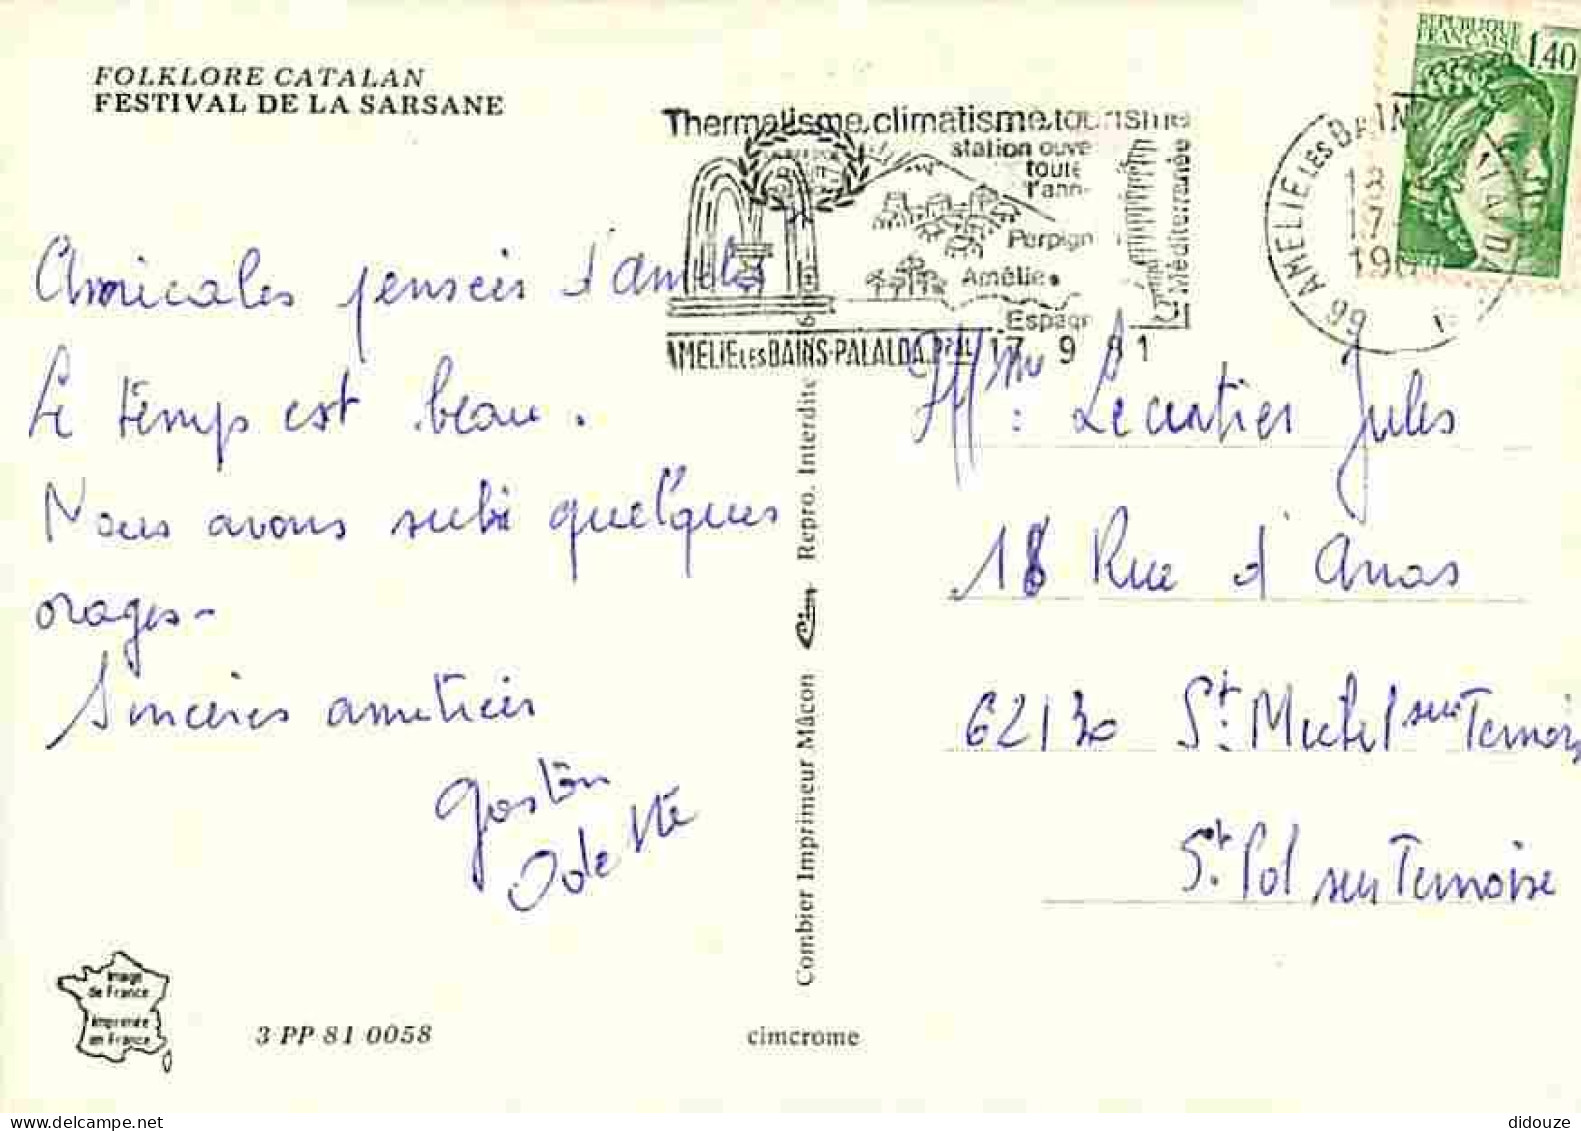 FOLKLORE CATALAN
FESTIVAL DE LA SARSANE
Amicales pensées d'Amélie
Le temps est beau.
Nous avons subi quelques
orages-
Sincères amitiés
Gaston
Odette
Image
de France
Imprimée
en France
3 PP 81 0058
cimcrome
Combier Imprimeur Mâcon Cim Repro. Interdite
Thermalisme.climatisme.tourisme
station ouve
toute
l'ann
Perpign
Amélie
Espagn
Méditerranée
AMELIE LES BAINS-PALALDA 17 9 81
66 AMELIE LES BAINS
REPUBLIQUE
FRANÇAISE
1,40
Mme: Lecartier Jules
18 Rue d'Arras
62130 St. Michel sur Ternoise
St. Pol sur Ternoise
didouze